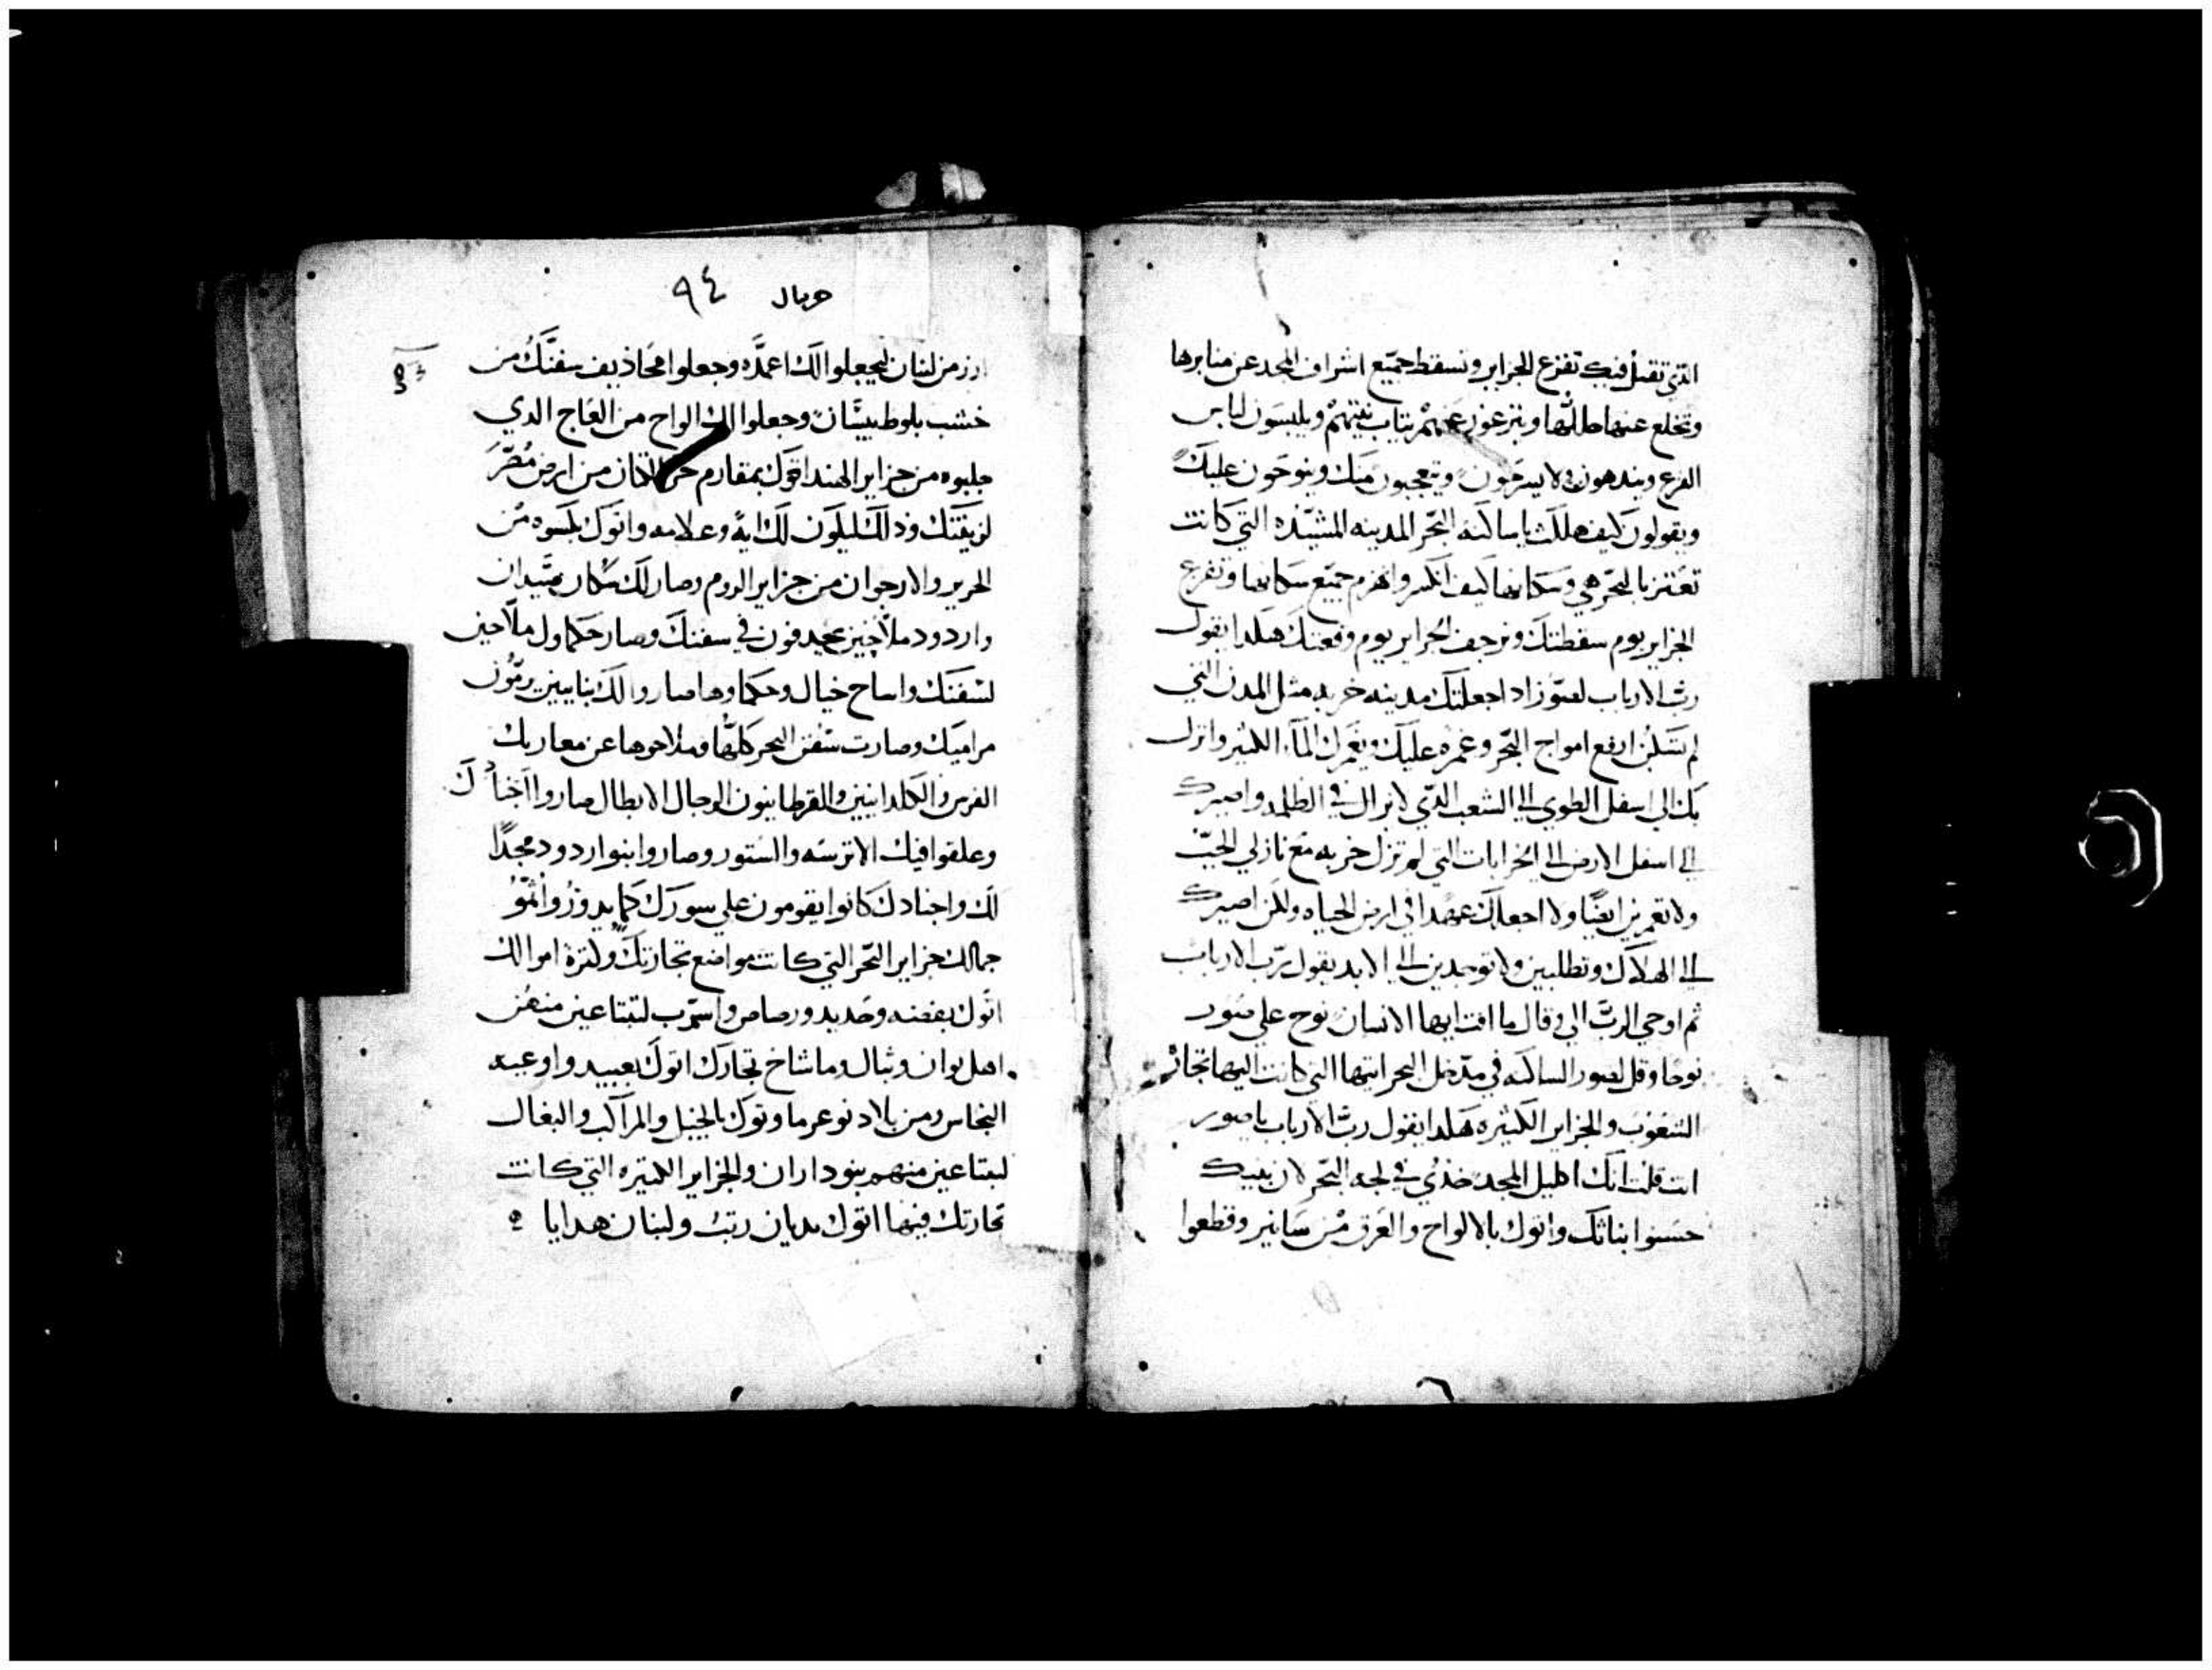 التي تقتل فيك تفزع الجزاير وتسقط جميع اشراف المجد عن منابرها
وتخلع عنها ظللها وينزعون عنهم ثياب نيتهم ويلبسون لباس
الفزع ويندهون ولا يسرحون ويتعجبون منك وينوحون عليك
ويقولون كيف هلكت يا ساكنه البحر المدينه المشيده التي كانت
تعتز بالبحر هي وسكانها كيف انكسر وانهزم جميع سكانها وتفزع
الجزاير يوم سقطتك وترجف الجزاير يوم وقعتك هكدا يقول
رب الارباب لصور اذا جعلتك مدينه خربه مثل المدن التي
لم تسكن ارفع امواج البحر وغمره عليك ويغمرك الماء الكثير وانزل
بك الي اسفل الطوي الي الشعب الذي لا يزال في الظلمه واصيرك
الي اسفل الارض الي الخرابات التي لم تزل خربه مع نازلي الجب
ولا تعمرين ايضا ولا اجعلك عهدا في ارض الحياه ولكن اصيرك
الي الهلاك وتطلبين ولا توجدين الي الابد يقول رب الارباب
ثم اوحي الرب الي وقال ما انت ايها الانسان نوح علي صور
نوحا وقل لصور الساكنه في مدخل البحر ايتها التي كانت اليها تجار
الشعوب والجزاير الكثيره هكدا يقول رب الارباب يا صور
انت قلت انك اكليل المجد خذي في لجه البحر لان بنيك
حسنوا بناتك واتوك بالالواح والعرق من سانير وقطعوا
٩٤
ارز من لبنان ليجعلوا لك اعمده وجعلوا مخاذيف سفنك من
خشب بلوط بيسان وجعلوا لك الواح من العاج الدي
جلبوه من جزاير الهند اتوك بمقارم الكتان من ارض مصر
لزينتك وذلك ليكون لك اية وعلامه واتوك بكسوه من
الحرير والارجوان من جزاير الروم وصار لك سكان صيدان
واردود ملاحين يجدفون في سفنك وصار حكماوك ملاحين
لسفنك واساح خبال وحكماوها صاروا لك بنايين يرمون
مراميك وصارت سفن البحر كلها وملاحوها عن معاربك
الفرس والكلدانيين والقرطانيون الرجال الابطال صاروا اجنادك
وعلقوا فيك الاترسه والستور وصاروا بنو اردود مجدا
لك واجنادك كانوا يقومون علي سورك كما يدور واتمو
جمالك جزاير البحر التي كانت مواضع تجارتك ولكثرة اموالك
اتوك بفضه وحديد ورصاص واسرب لتبتاعين منهن
اهل يوان وثبال وماشاخ تجارك اتوك بعبيد واوعيه
النحاس ومن بلاد توغرما وتوك بالخيل والمراكب والبغال
لتبتاعين منهم بنو داران والجزاير الكثيره التي كانت
تجارتك فيها اتوك بدهان رتب ولبنان هدايا